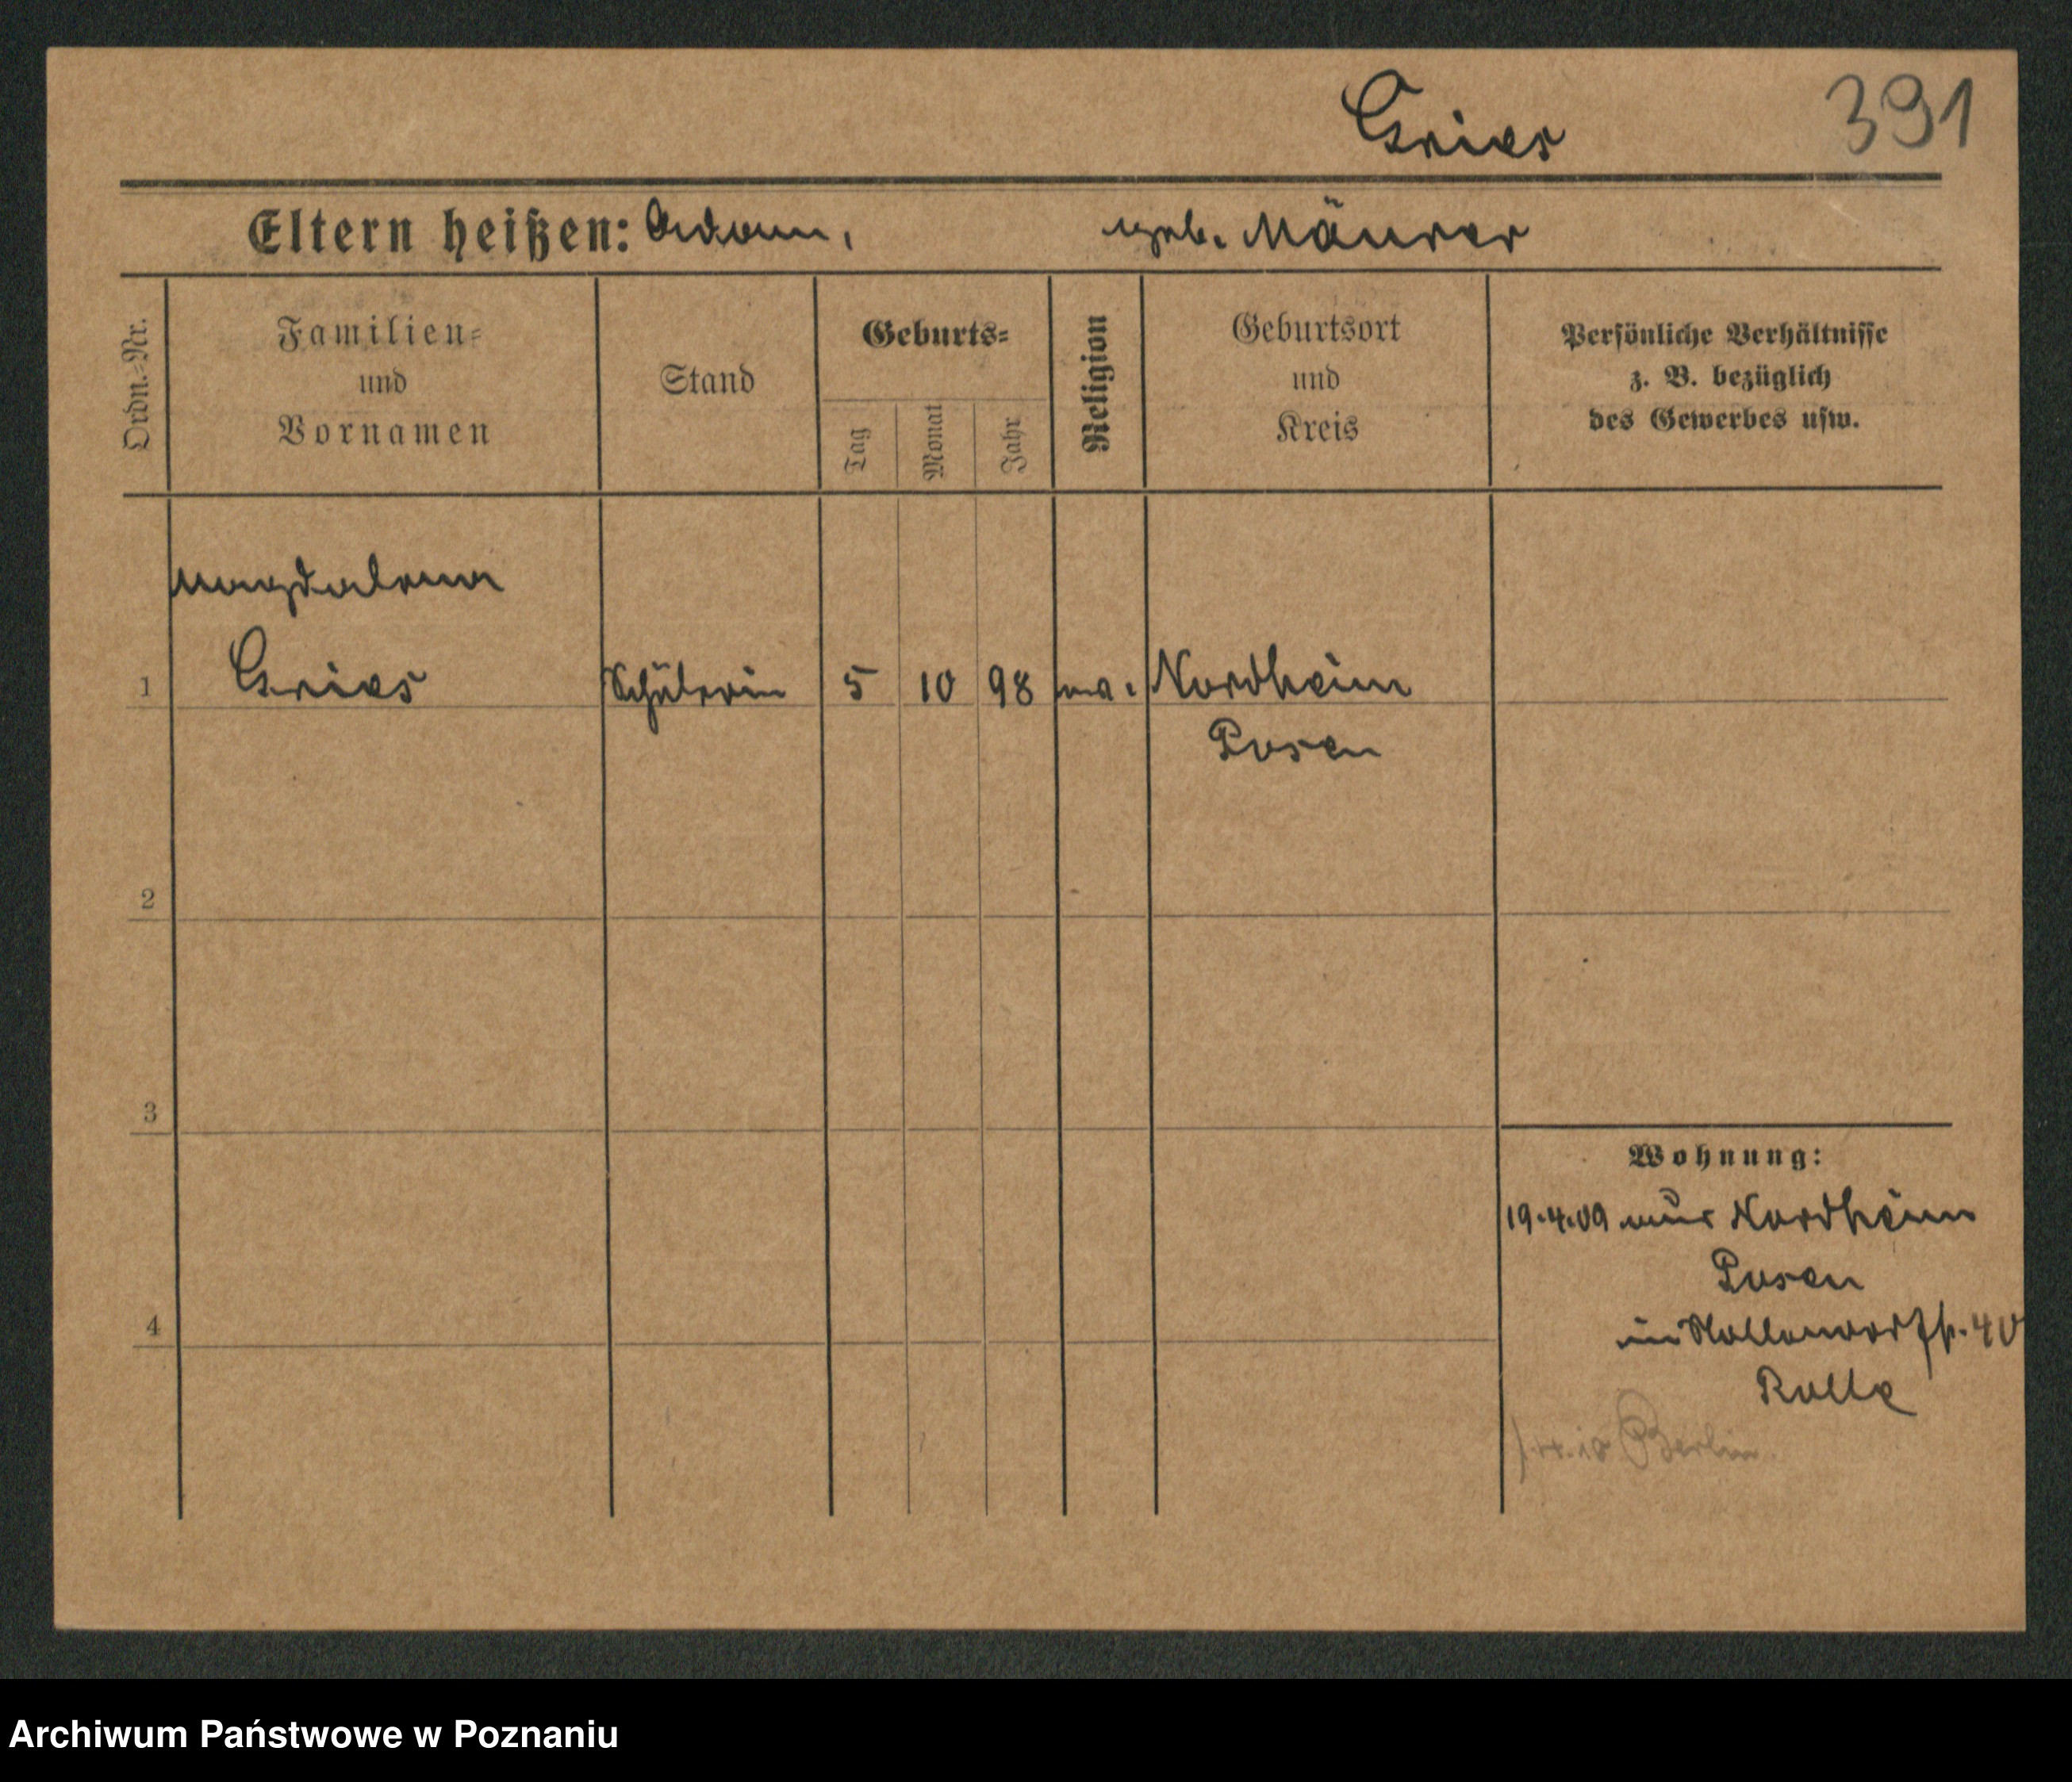 Gries 391
Eltern heißen: Adam, geb. Mäurer
Ordn.-Nr.
Familien-
und
Vornamen
Stand
Geburts-
Tag
Monat
Jahr
Religion
Geburtsort
und
Kreis
Persönliche Verhältnisse
z. B. bezüglich
des Gewerbes usw.
Magdalena
1 Gries Schülerin 5 10 98 Nordheim
Posen
2
3
4
Wohnung:
19.4.09 aus Nordheim
Posen
in 40
Rolle
Berlin
Archiwum Państwowe w Poznaniu